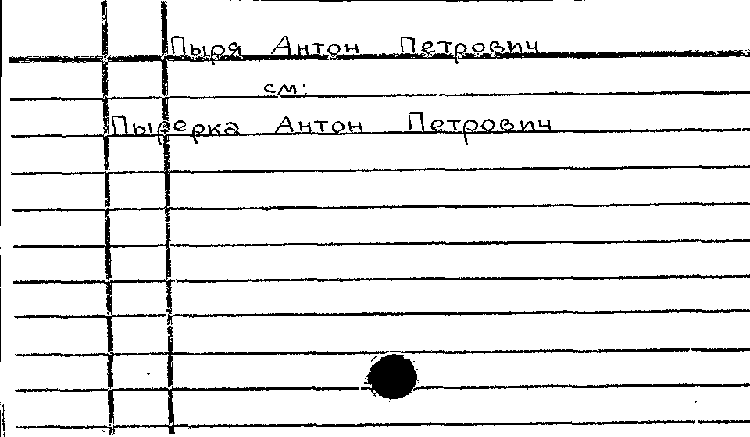 Пыря Антон Петрович
см:
Пырерка Антон Петрович